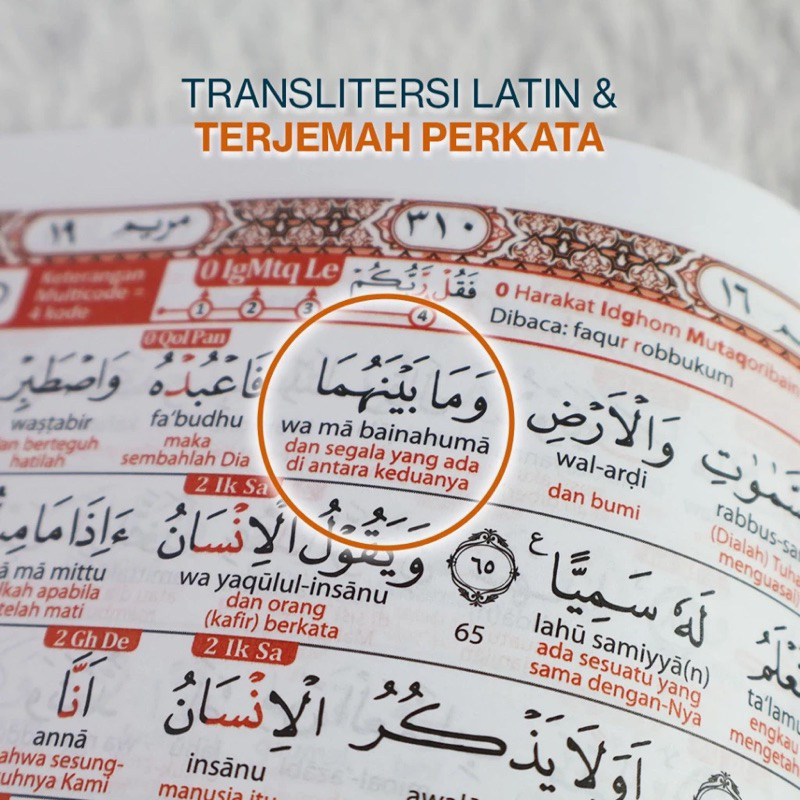 TRANSLITERSI LATIN &
TERJEMAH PERKATA
مريم ١٩
٣١٠
١٦
Keterangan
Multicode =
4 kode
0 IgMtq Le
1 2 3 4
فَقُلْ رَّبُّكُمْ
0 Harakat Idghom Mutaqoribain
Dibaca: faqur robbukum
0 Qol Pan
وَالْاَرْضِ وَمَا بَيْنَهُمَا فَاعْبُدْهُ وَاصْطَبِرْ
rabbus-sa wal-arḍi wa mā bainahumā fa‘budhu waṣṭabir
(Dialah) Tuha dan bumi dan segala yang ada di antara keduanya maka sembahlah Dia an berteguh hatilah
menguasai
2 Ik Sa
لَهٗ سَمِيًّا ࣖ ٦٥ وَيَقُوْلُ الْاِنْسَانُ ءَاِذَا مَا مِ
ta‘lamu lahū samiyyā(n) 65 wa yaqūlul-insānu ā mā mittu
engkau mengetah ada sesuatu yang sama dengan-Nya dan orang (kafir) berkata kah apabila telah mati
2 Ik Sa
2 Gh De
اَوَلَا يَذْكُرُ الْاِنْسَانُ اَنَّا
insānu annā
manusia itu ahwa sesung-
uhnya Kami